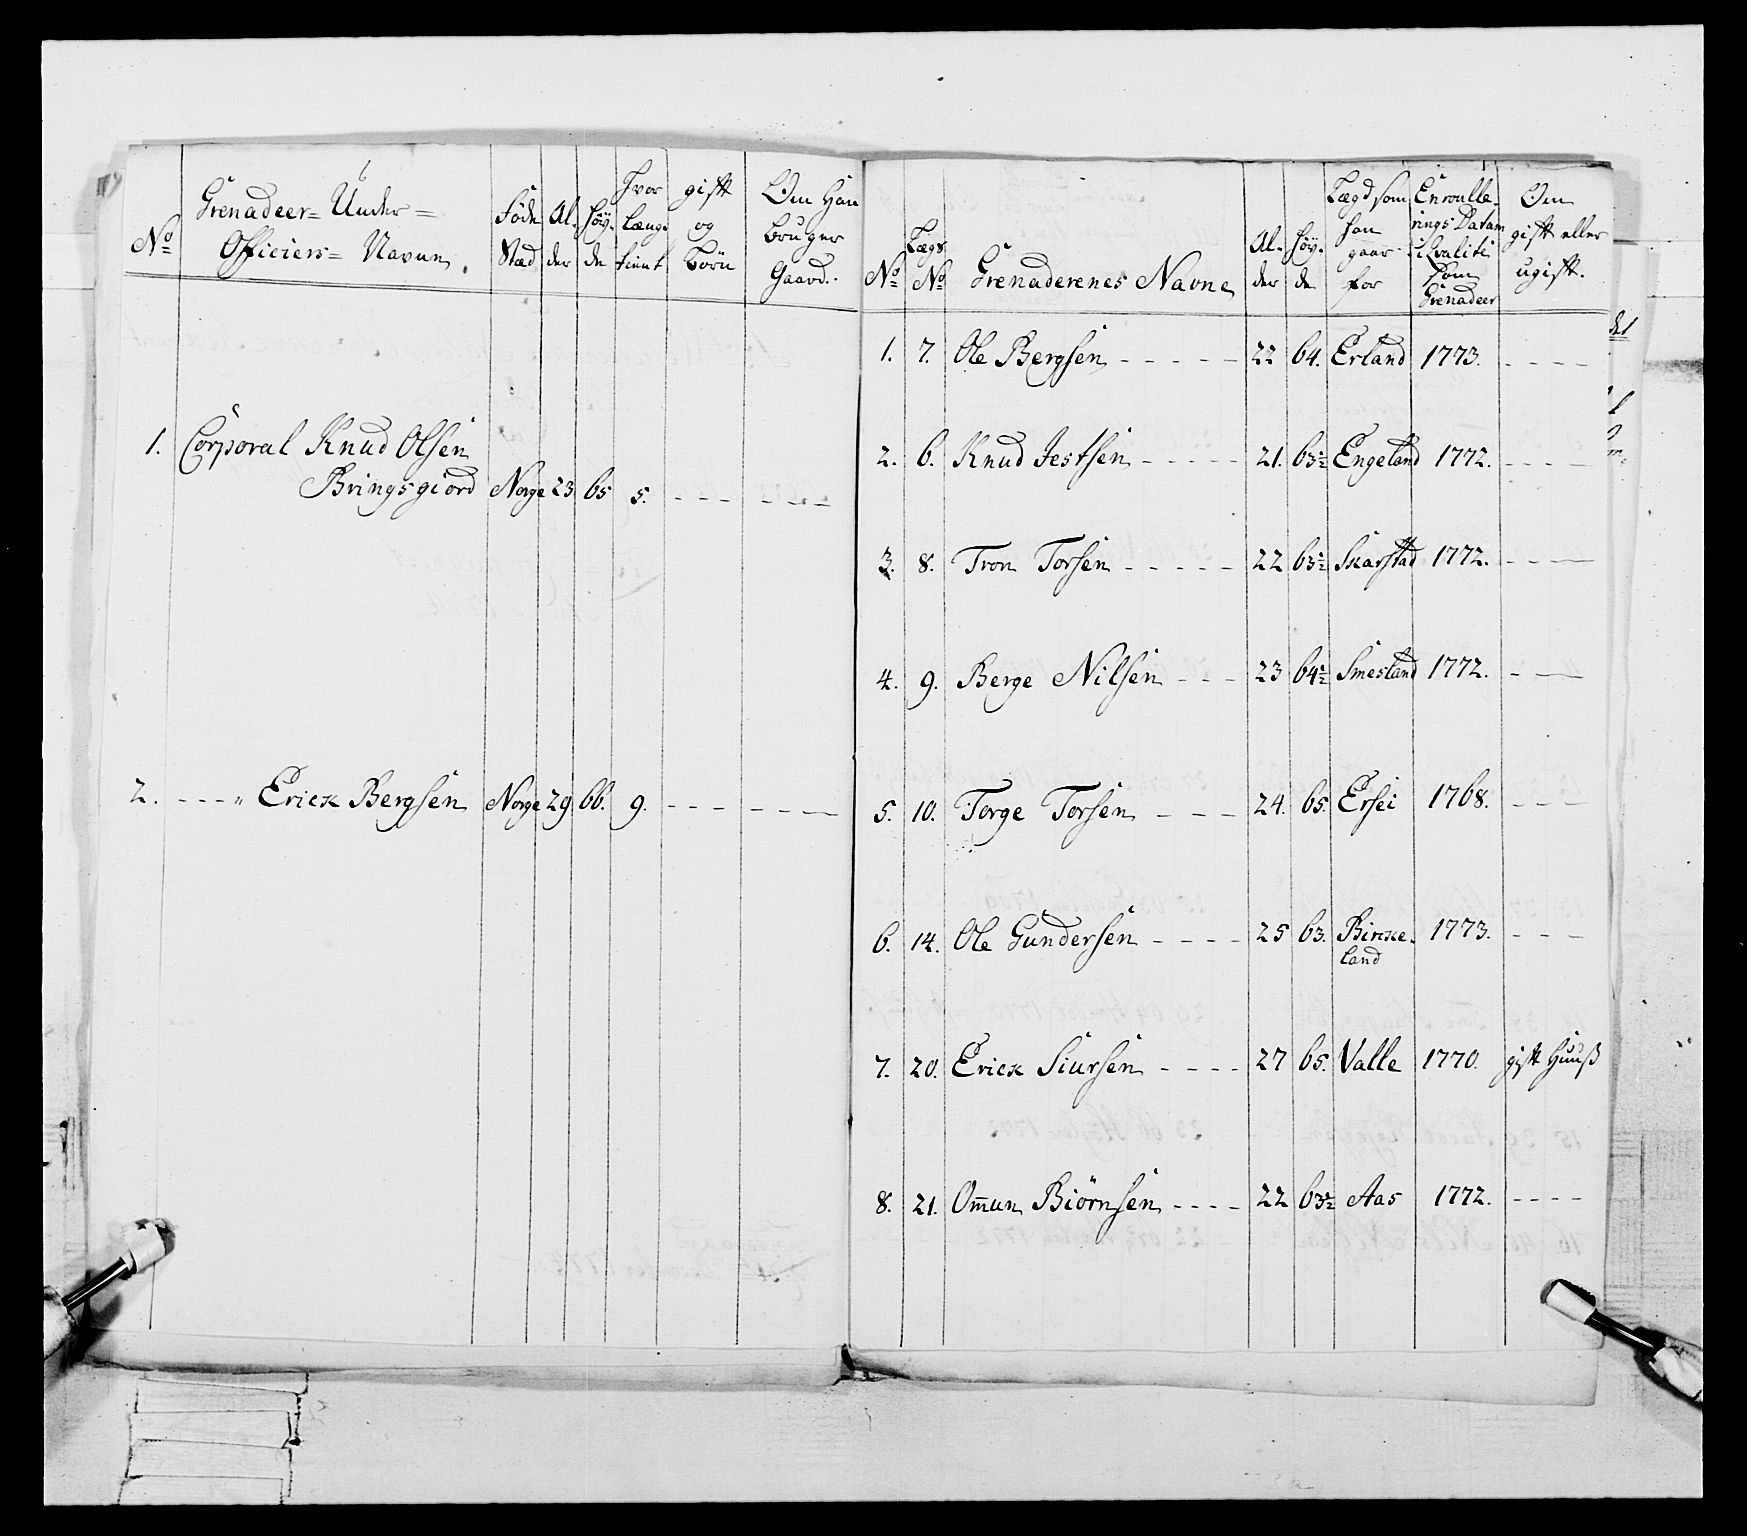 No
Grenadeer= Under=
Officiers= Navne.
Föde
Stæd
Al-
der
Höy-
de
Hvor
læng-
tient
gift
og
Börn
Om han
bruger
Gaard.
1. Corporal Knud Olsen
Bringsgiord Norge 23 65 5. - - - - - -
2. - - - " Erick Bergsen Norge 29 66. 9. - - - - - -
No
Lægs
No
Grenaderenes Navne
Al-
der
Höy-
de
Lægd som
han
gaar
for
Enroulle-
rings Datum
i Qvaliti
som
Grenadeer
Om
gift eller
ugift.
1. 7. Ole Bergsen - - - - - 22 64. Erland 1773. - - - -
2. 6. Knud Jestsen - - - - - 21. 63½ Engeland 1772. - - - -
3. 8. Tron Torsen - - - - - 22 63½ Skarstad 1772. - - - -
4. 9. Berge Nilsen - - - 23 64½ Smestand 1772. - - -
5. 10. Torge Torsen - - - 24. 65. Ersei 1768. - - -
6. 14. Ole Gundersen - - - - 25 63. Bircke- 1773. - - -
land
7. 20. Erick Siursen - - - - 27 65. Valle 1770. gift Huuß
8. 21. Om̅un Biörnsen - - - - 22 63½ Aas 1772. - - - -